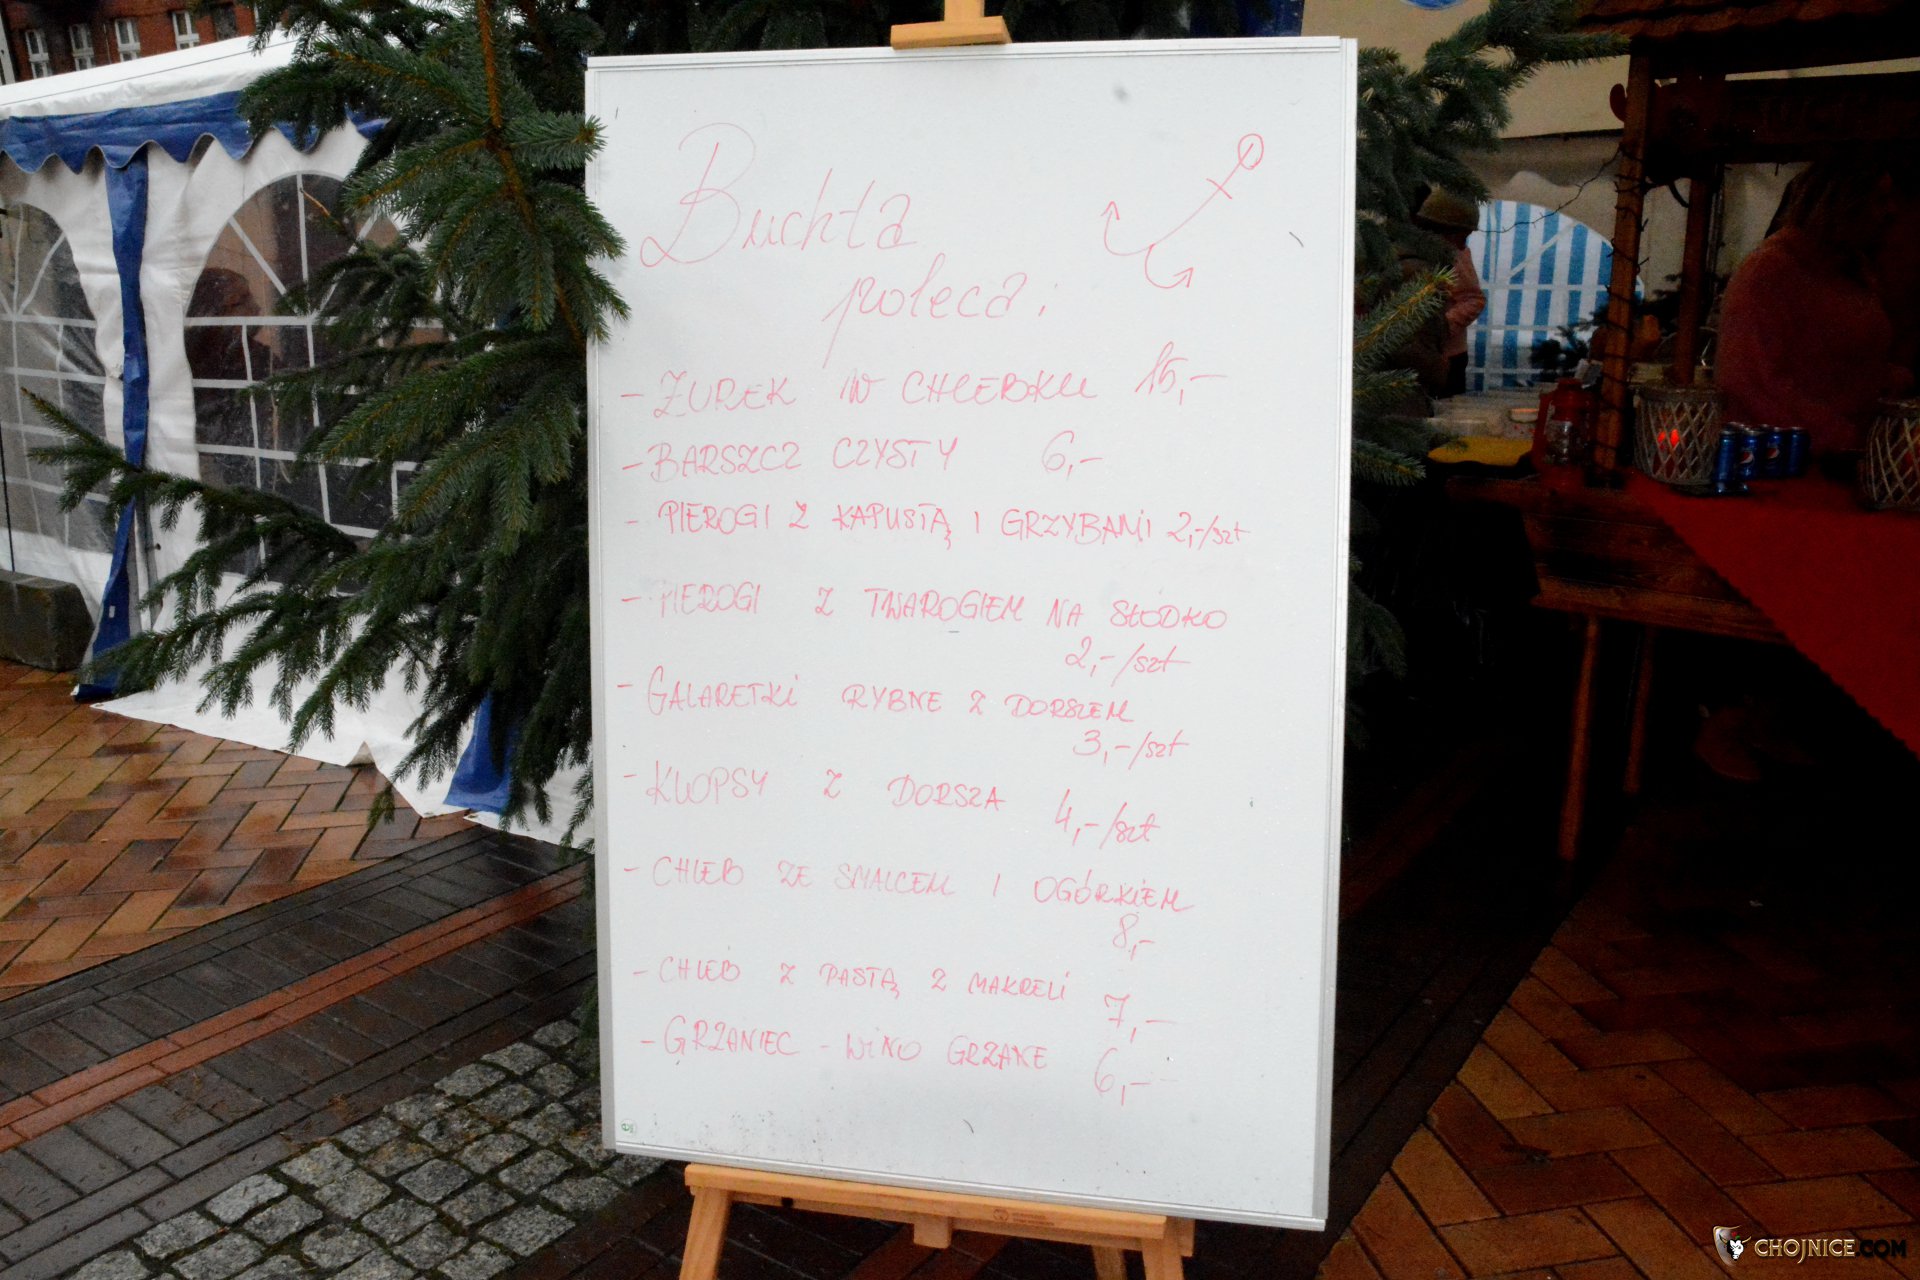 Buchta
poleca:
- ŻUREK W CHLEBKU 15,-
- BARSZCZ CZYSTY 6,-
- PIEROGI Z KAPUSTĄ I GRZYBAMI 2,-/szt
- PIEROGI Z TWAROGIEM NA SŁODKO
2,-/szt
- GALARETKI RYBNE Z DORSZEM
3,-/szt
- KLOPSY Z DORSZA 4,-/szt
- CHLEB ZE SMALCEM I OGÓRKIEM
8,-
- CHLEB Z PASTĄ Z MAKRELI 7,-
- GRZANIEC - WINO GRZANE 6,-
CHOJNICE.COM